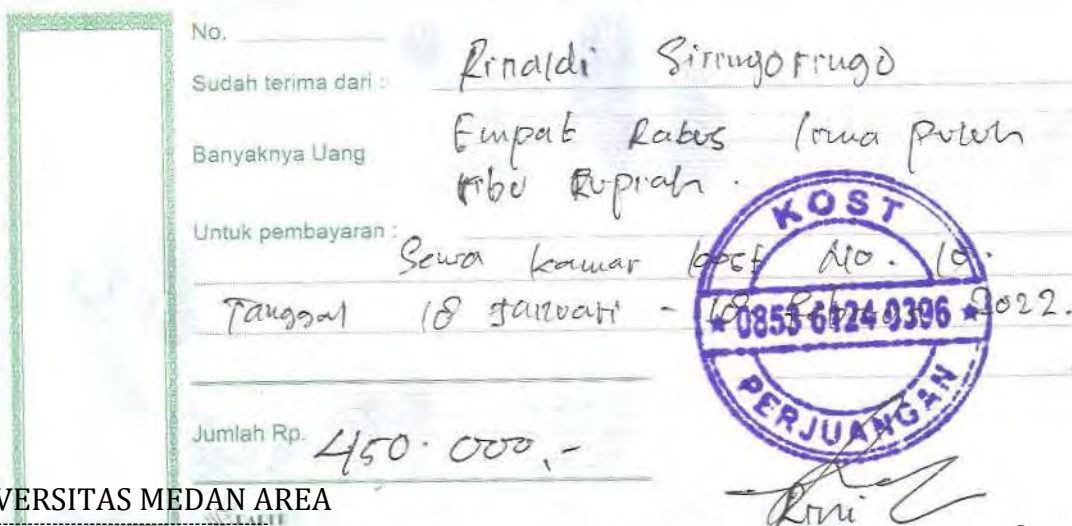 No.
Sudah terima dari : Rinaldi Siringoringo
Banyaknya Uang Empat Ratus lima puluh
ribu Rupiah.
Untuk pembayaran :
Sewa kamar kost No. 10.
Tanggal 18 Januari - 18 Februari 2022.
KOST
★ 0853 6124 0396 ★
PERJUANGAN
Jumlah Rp. 450.000,-
Rini
VERSITAS MEDAN AREA